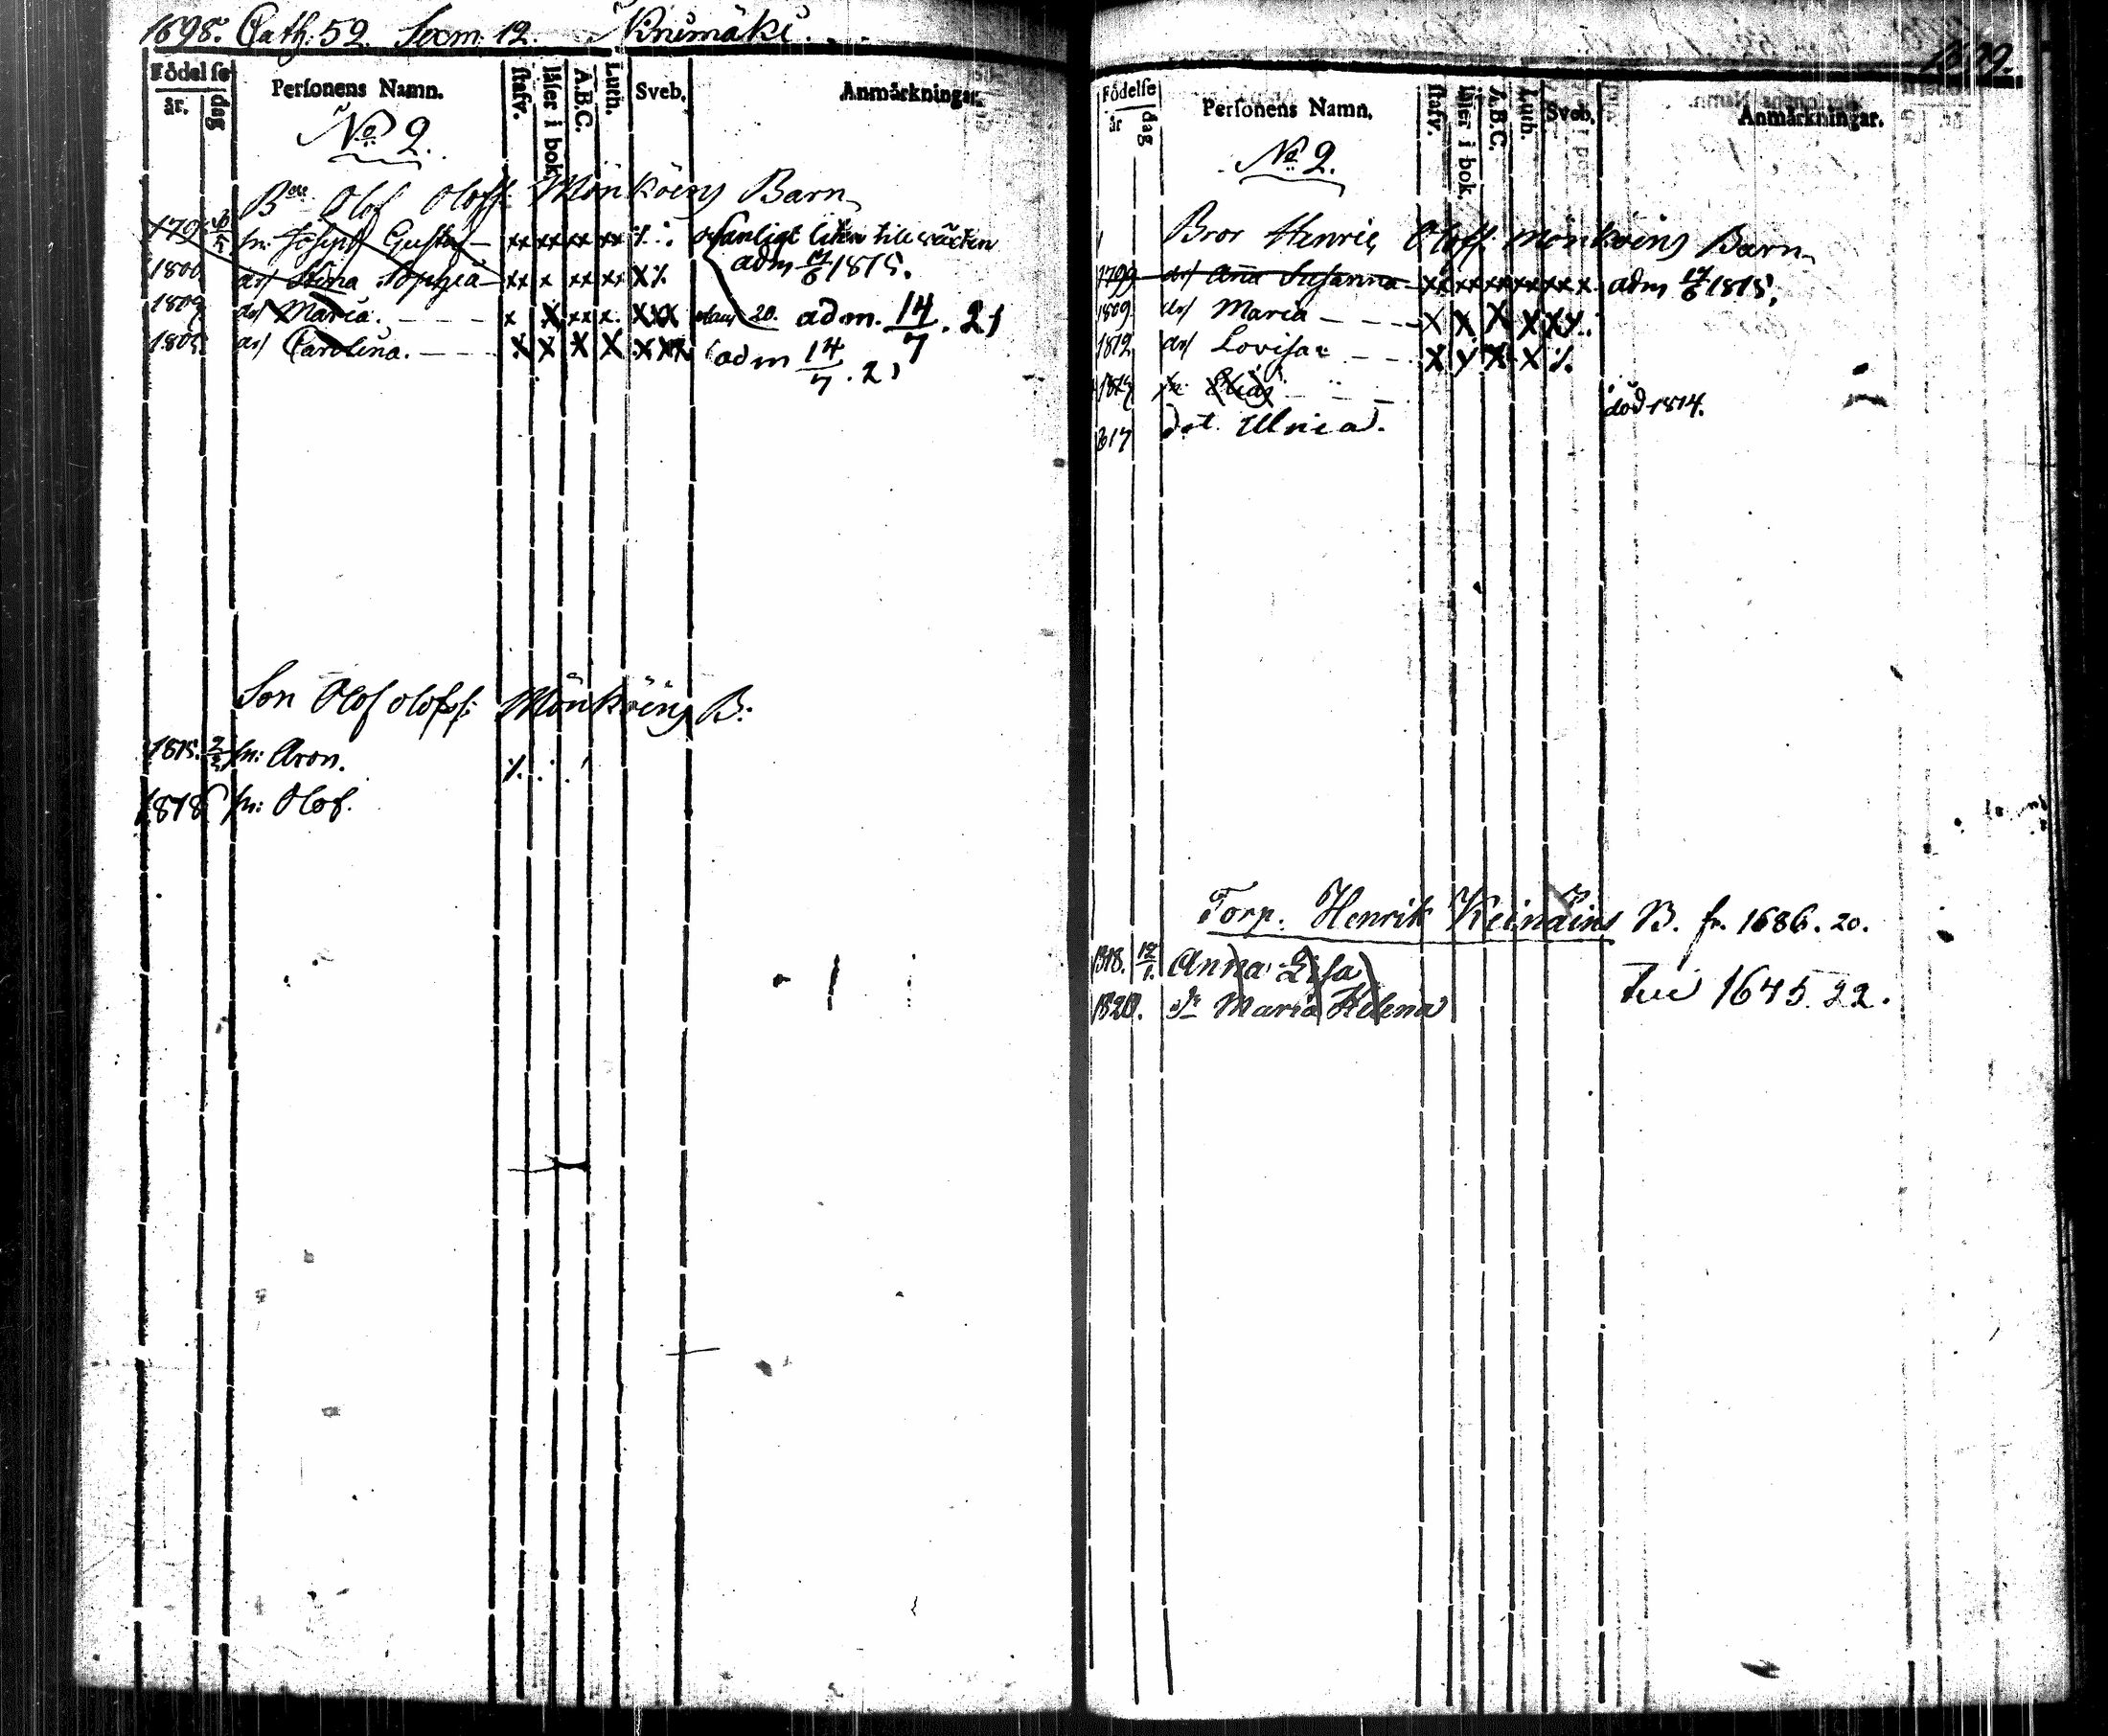 1698. Cath: 52. Sexm 12. Knumäki.
Födelse
år.
dag
Personens Namn.
stafv.
läser i bok
A.B.C.
Luth.
Sveb.
Anmärkningar.
No 2.
Bon Olof Oloffs Mönköins Barn
179 sn: Josept Gustaf — xx xx xx xx ovanligt liten till växten
1800 dr Stina Sophia — xx x xx xx x adm 17/6 1815.
1809 dr Maria. — x x xx x. xxx 20. adm. 14/7. 21
1805 dr Carolina. — x x x x xxx adm 14/7. 21
Son Olof olofss: Mönköins B:
1815. sn: Aron.
1818 sn: Olof.
1699.
Födelse
år
dag
Personens Namn.
stafv.
läser i bok.
A.B.C.
Luth.
Sveb.
Anmärkningar.
No 2.
Bror Henric Oloffs Mönköins Barn
1799 dr Anna Susanna xx xx xx xx xx x. adm 17/6 1815.
1809 dr Maria — x x x x x
1812 dr Lovisa — x x x x
sn: Elias död 1814.
817 dot. Ulrica.
Torp. Henrik Keinäins B. fr. 1686. 20.
1818. 12/1. Anna Lisa
1820. dr Maria Helena Till 1645. 22.